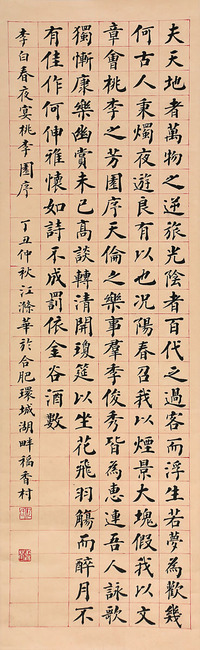 夫天地者萬物之逆旅光陰者百代之過客而浮生若夢為歡幾
何古人秉燭夜遊良有以也況陽春召我以煙景大塊假我以文
章會桃李之芳園序天倫之樂事羣季俊秀皆為惠連吾人詠歌
獨慚康樂幽賞未已高談轉清開瓊筵以坐花飛羽觴而醉月不
有佳作何伸雅懷如詩不成罰依金谷酒數
李白春夜宴桃李園序 丁丑仲秋江滌華於合肥環城湖畔稻香村